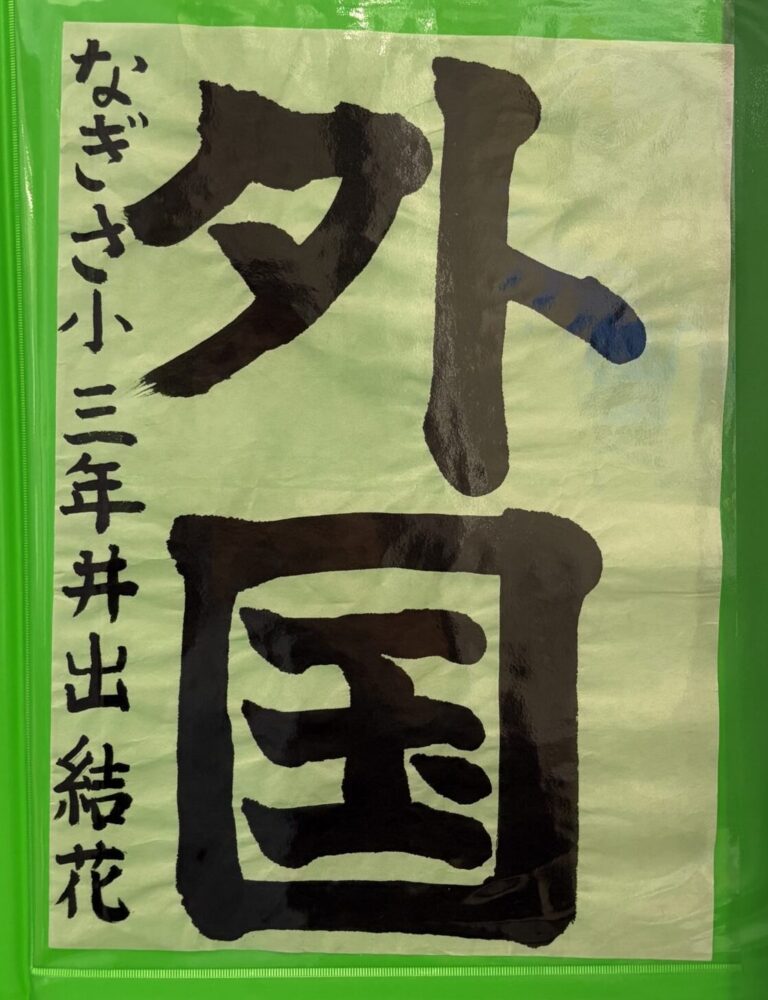 外国
なぎさ小 三年 井出 結花